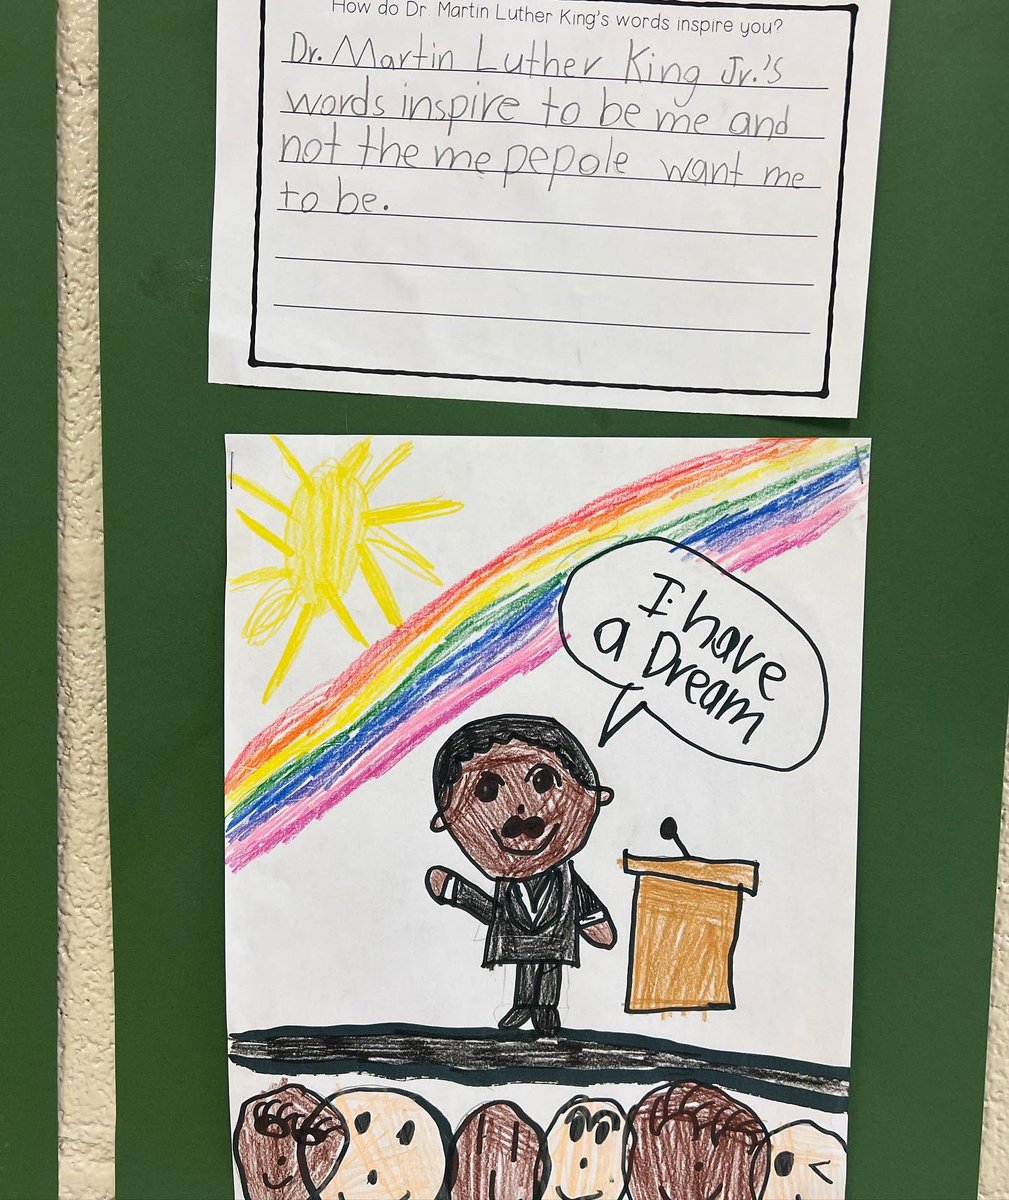 How do Dr. Martin Luther King's words inspire you?
Dr. Martin Luther King Jr.'s
words inspire to be me and
not the me pepole want me
to be.
I have
a Dream